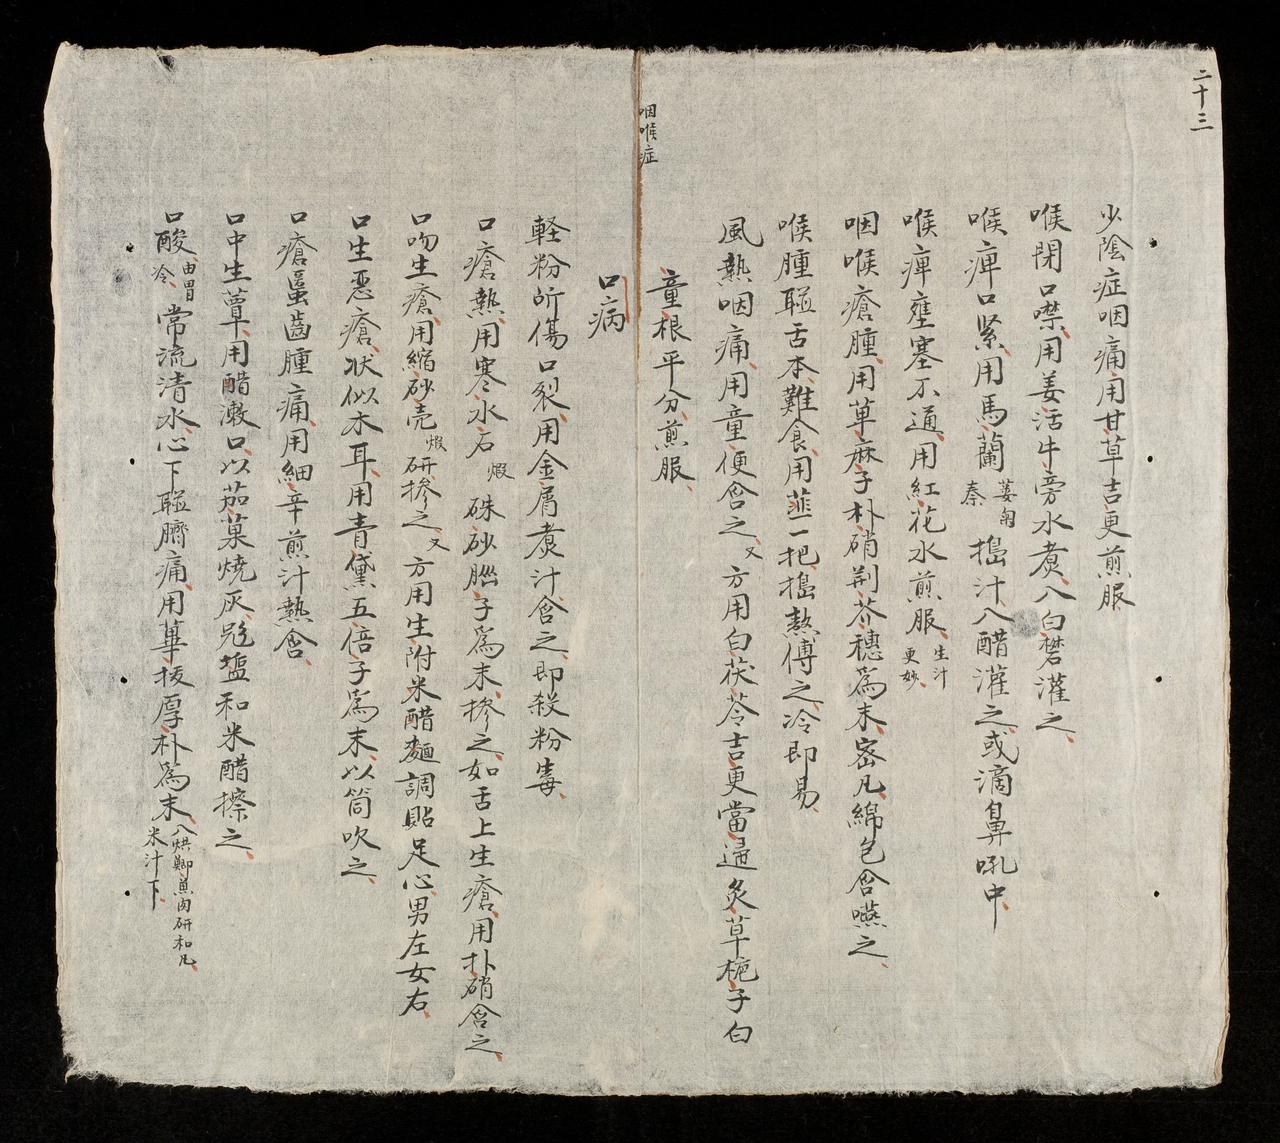 二十三
少陰症咽痛用甘草吉更煎服
喉閉口噤用姜活牛旁水煮入白礬灌之
喉痺口紧用馬蘭
秦
搗汁入醋灌之或滴鼻吼中
喉痺壅塞不通用紅花水煎服生汁
更妙
咽喉瘡腫用草麻子朴硝荆芥穗爲末密凡綿包含嚥之
喉腫聑舌本難食用韮一把搗熱傅之冷即易
風熱咽痛用童便含之又方用白茯苓吉更當逼炙草梔子白
童根平分煎服
咽喉症
口病
軽粉所傷口裂用金屑煮汁含之即殺粉毒
口瘡熱用寒水石煆硃砂腦子爲末摻之如舌上生瘡用扑硝含之
口吻生瘡用縮砂壳煆研摻之又方用生附米醋麵調貼足心男左女右
口生恶瘡状似木耳用青黛五倍子爲末以筒吹之
口瘡䘌齒腫痛用細辛煎汁熱含
口中生蕈用醋漱口以茄菓燒灰盐和米醋擦之
口酸由胃
冷
常流清水心下聑臍痛用蓽拨厚朴爲末入烘鯽煎肉研和凡
米汁下